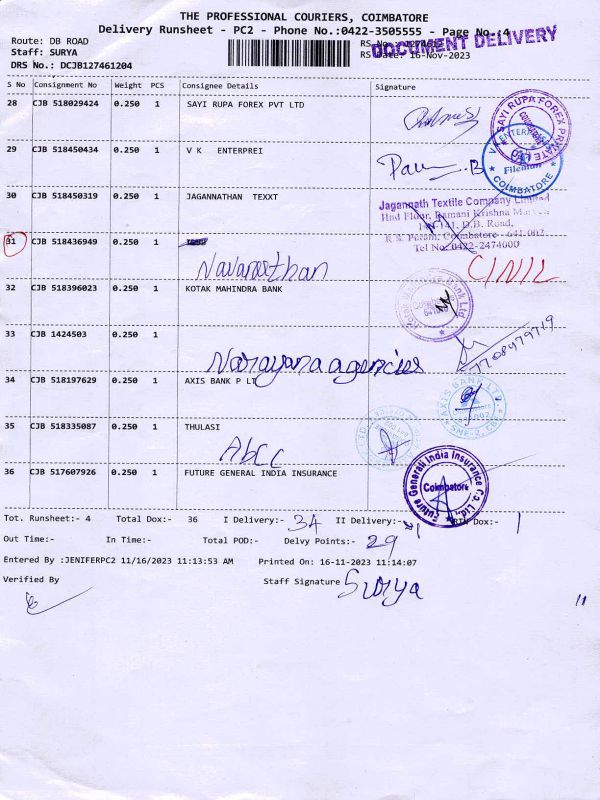 THE PROFESSIONAL COURIERS, COIMBATORE
Delivery Runsheet - PC2 - Phone No.:0422-3505555 - Page No.:4
Route: DB ROAD
DOCUMENT DELIVERY
Staff: SURYA
RS Date: 16-Nov-2023
DRS No.: DCJB127461204
S No Consignment No Weight PCS Consignee Details Signature
28 CJB 518029424 0.250 1 SAYI RUPA FOREX PVT LTD
SAYI RUPA FOREX PRIVATE
29 CJB 518450434 0.250 1 V K ENTERPREI
COIMBATORE
30 CJB 518450319 0.250 1 JAGANNATHAN TEXXT
Jagannath Textile Company Limited
IInd Floor, Ramani Krishna
D.B. Road,
R.S. Puram, Coimbatore - 641 002
Tel No: 0422-2474000
31 CJB 518436949 0.250 1
Navaneethan
32 CJB 518396023 0.250 1 KOTAK MAHINDRA BANK
33 CJB 1424503 0.250 1
Narayana agencies
34 CJB 518197629 0.250 1 AXIS BANK P LT
AXIS BANK LTD.
35 CJB 518335087 0.250 1 THULASI
Abcc
36 CJB 517607926 0.250 1 FUTURE GENERAL INDIA INSURANCE
Future Generali India Insurance Co. Ltd.
Coimbatore
Tot. Runsheet:- 4 Total Dox:- 36 I Delivery:- 34 II Delivery:- RTN Dox:- 1
Out Time:- In Time:- Total POD:- Delvy Points:- 29
Entered By :JENIFERPC2 11/16/2023 11:13:53 AM Printed On: 16-11-2023 11:14:07
Verified By Staff Signature Surya